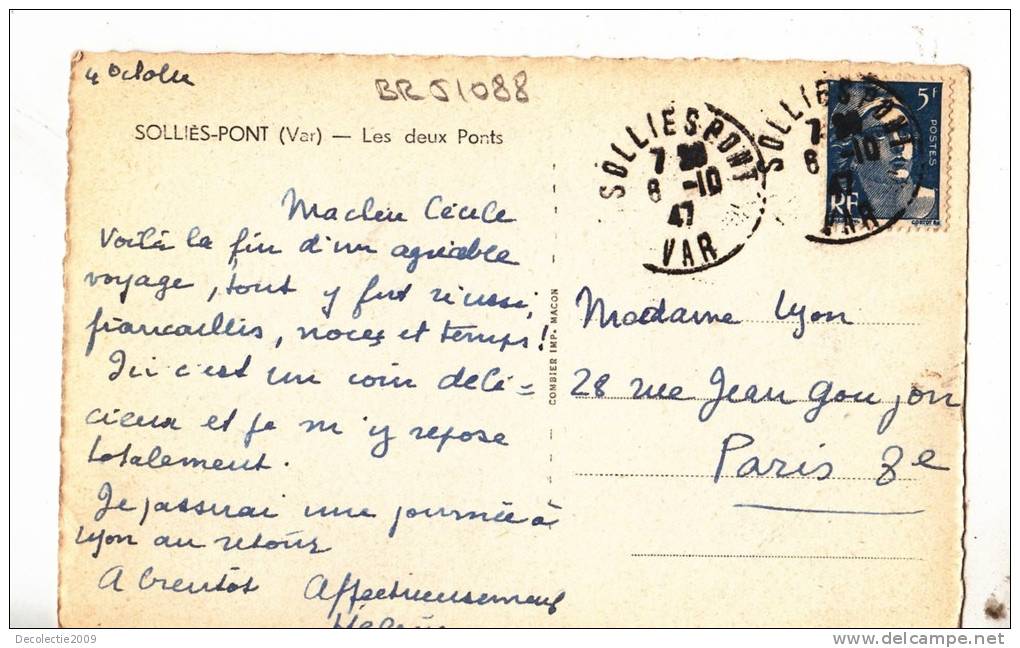 4 Octobre
BR51088
SOLLIÈS-PONT (Var) — Les deux Ponts
Ma chère Cécile
Voilà la fin d'un agréable
voyage, tout y fut réussi,
fiancailles, noces et temps!
Ici c'est un coin déli=
cieux et je m'y repose
totalement.
Je passerai une journée à
Lyon au retour
A bientôt Affectueusement
COMBIER IMP. MACON
SOLLIES-PONT
7
6 -10
47
VAR
SOLLIES-PONT
7
6 -10
47
VAR
5F
POSTES
RF
Madame Lyon
28 rue Jean Goujon
Paris 8e
Decolectie2009
delcampe.net